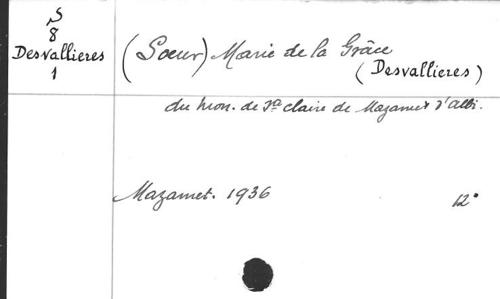 S
8
Desvallieres
1
(Soeur) Marie de la Grâce
(Desvallieres)
du mon. de Ste claire de Mazamet d'Albi.
Mazamet. 1936
12°